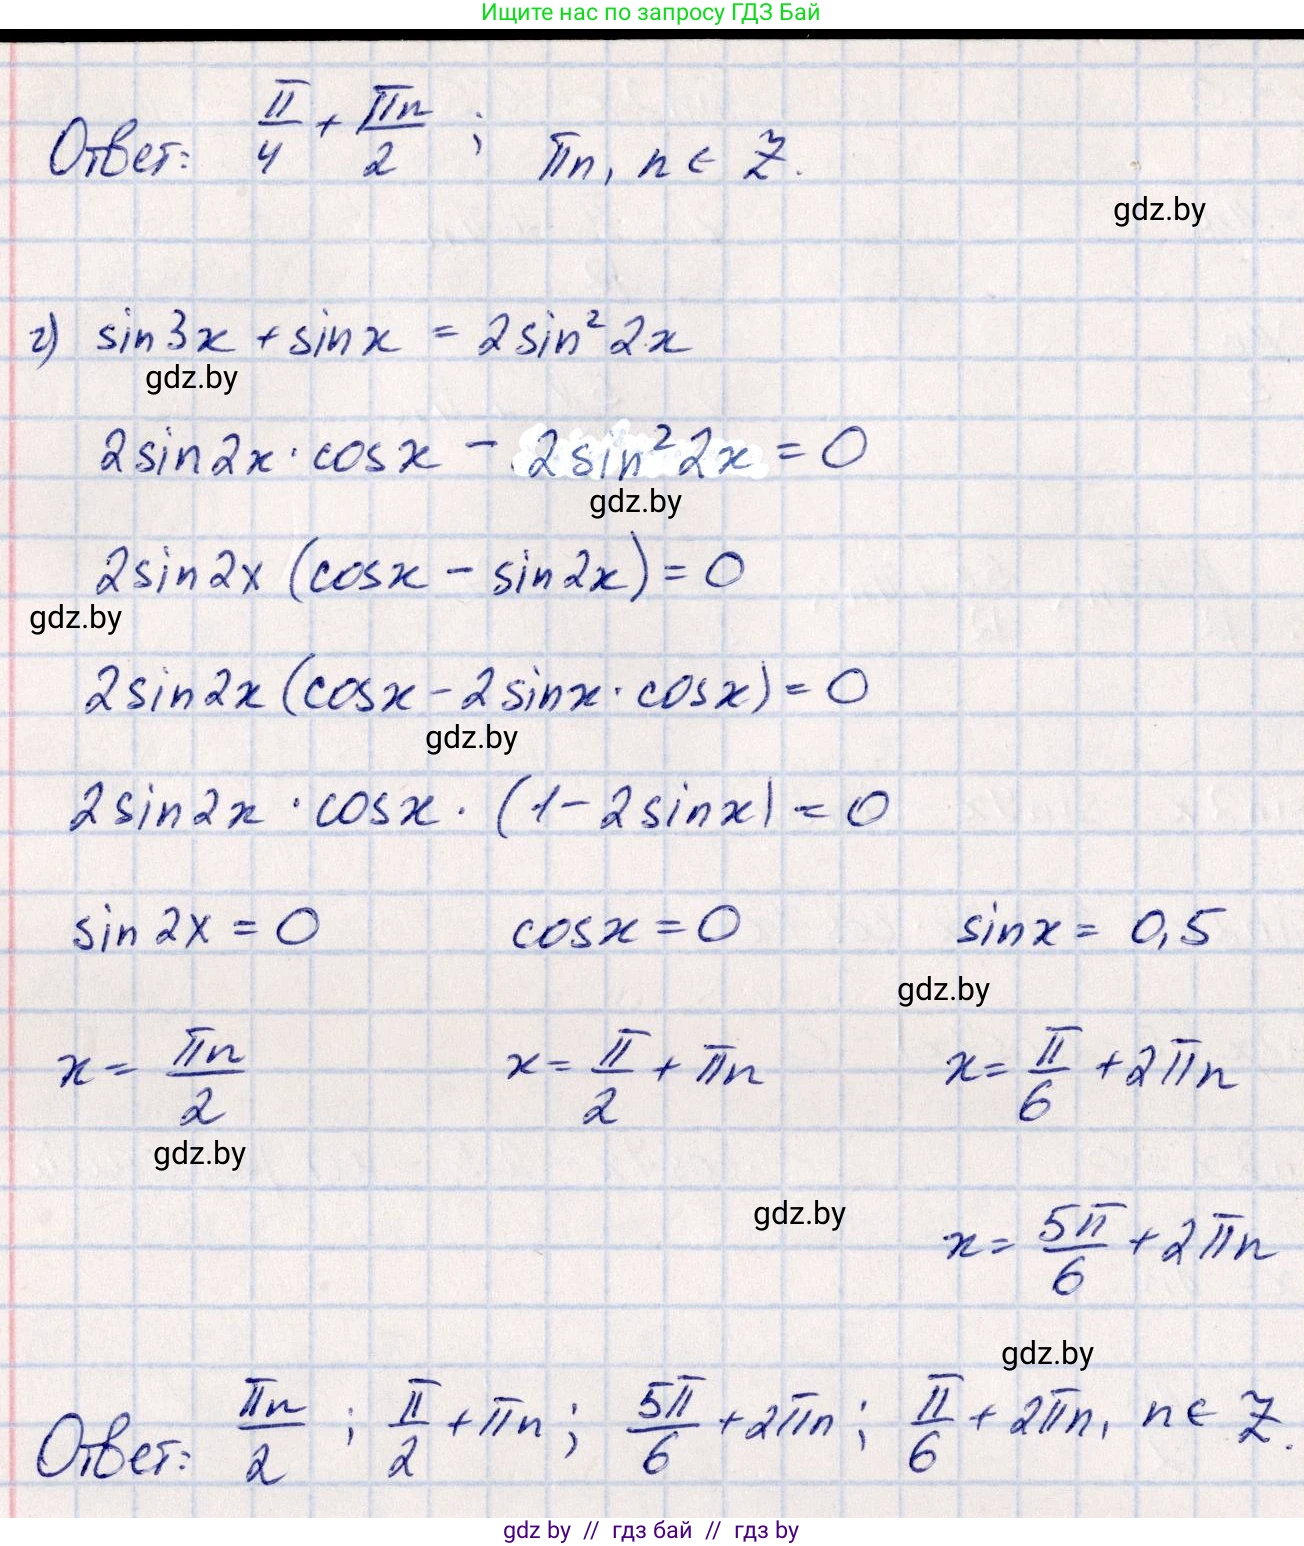 Ищите нас по запросу ГДЗ Бай
Ответ: π/4 + πn/2 ; πn, n ∈ Z.
gdz.by
г) sin3x + sinx = 2sin²2x
gdz.by
2sin2x · cosx - 2sin²2x = 0
gdz.by
2sin2x (cosx - sin2x) = 0
gdz.by
2sin2x (cosx - 2sinx · cosx) = 0
gdz.by
2sin2x · cosx · (1 - 2sinx) = 0
sin2x = 0 cosx = 0 sinx = 0,5
gdz.by
x = πn/2 x = π/2 + πn x = π/6 + 2πn
gdz.by
gdz.by
x = 5π/6 + 2πn
gdz.by
Ответ: πn/2 ; π/2 + πn ; 5π/6 + 2πn ; π/6 + 2πn, n ∈ Z.
gdz by // гдз бай // гдз by